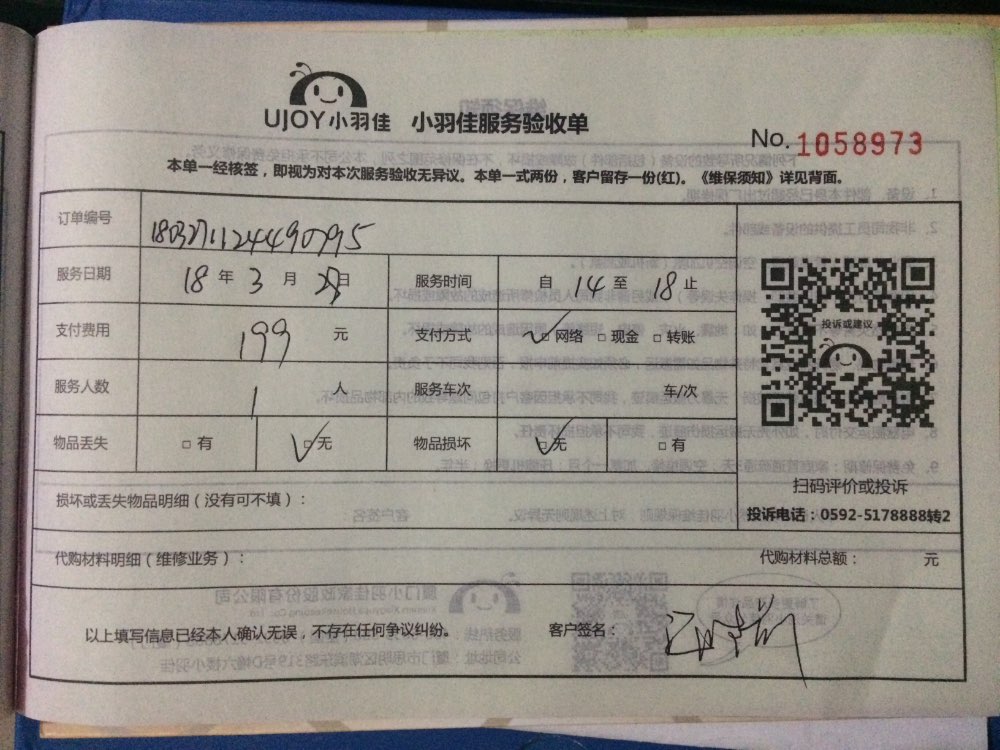 UJOY小羽佳 小羽佳服务验收单
No. 1058973
本单一经核签，即视为对本次服务验收无异议。本单一式两份，客户留存一份(红)。《维保须知》详见背面。
订单编号
服务日期 18 年 3 月 日 服务时间 自 14 至 18 止
支付费用 199 元 支付方式 ✓网络 □现金 □转账
服务人数 1 人 服务车次 车/次
物品丢失 □有 ✓无 物品损坏 ✓无 □有
投诉或建议
扫码评价或投诉
投诉电话：0592-5178888转2
损坏或丢失物品明细（没有可不填）：
代购材料明细（维修业务）： 代购材料总额： 元
以上填写信息已经本人确认无误，不存在任何争议纠纷。 客户签名：